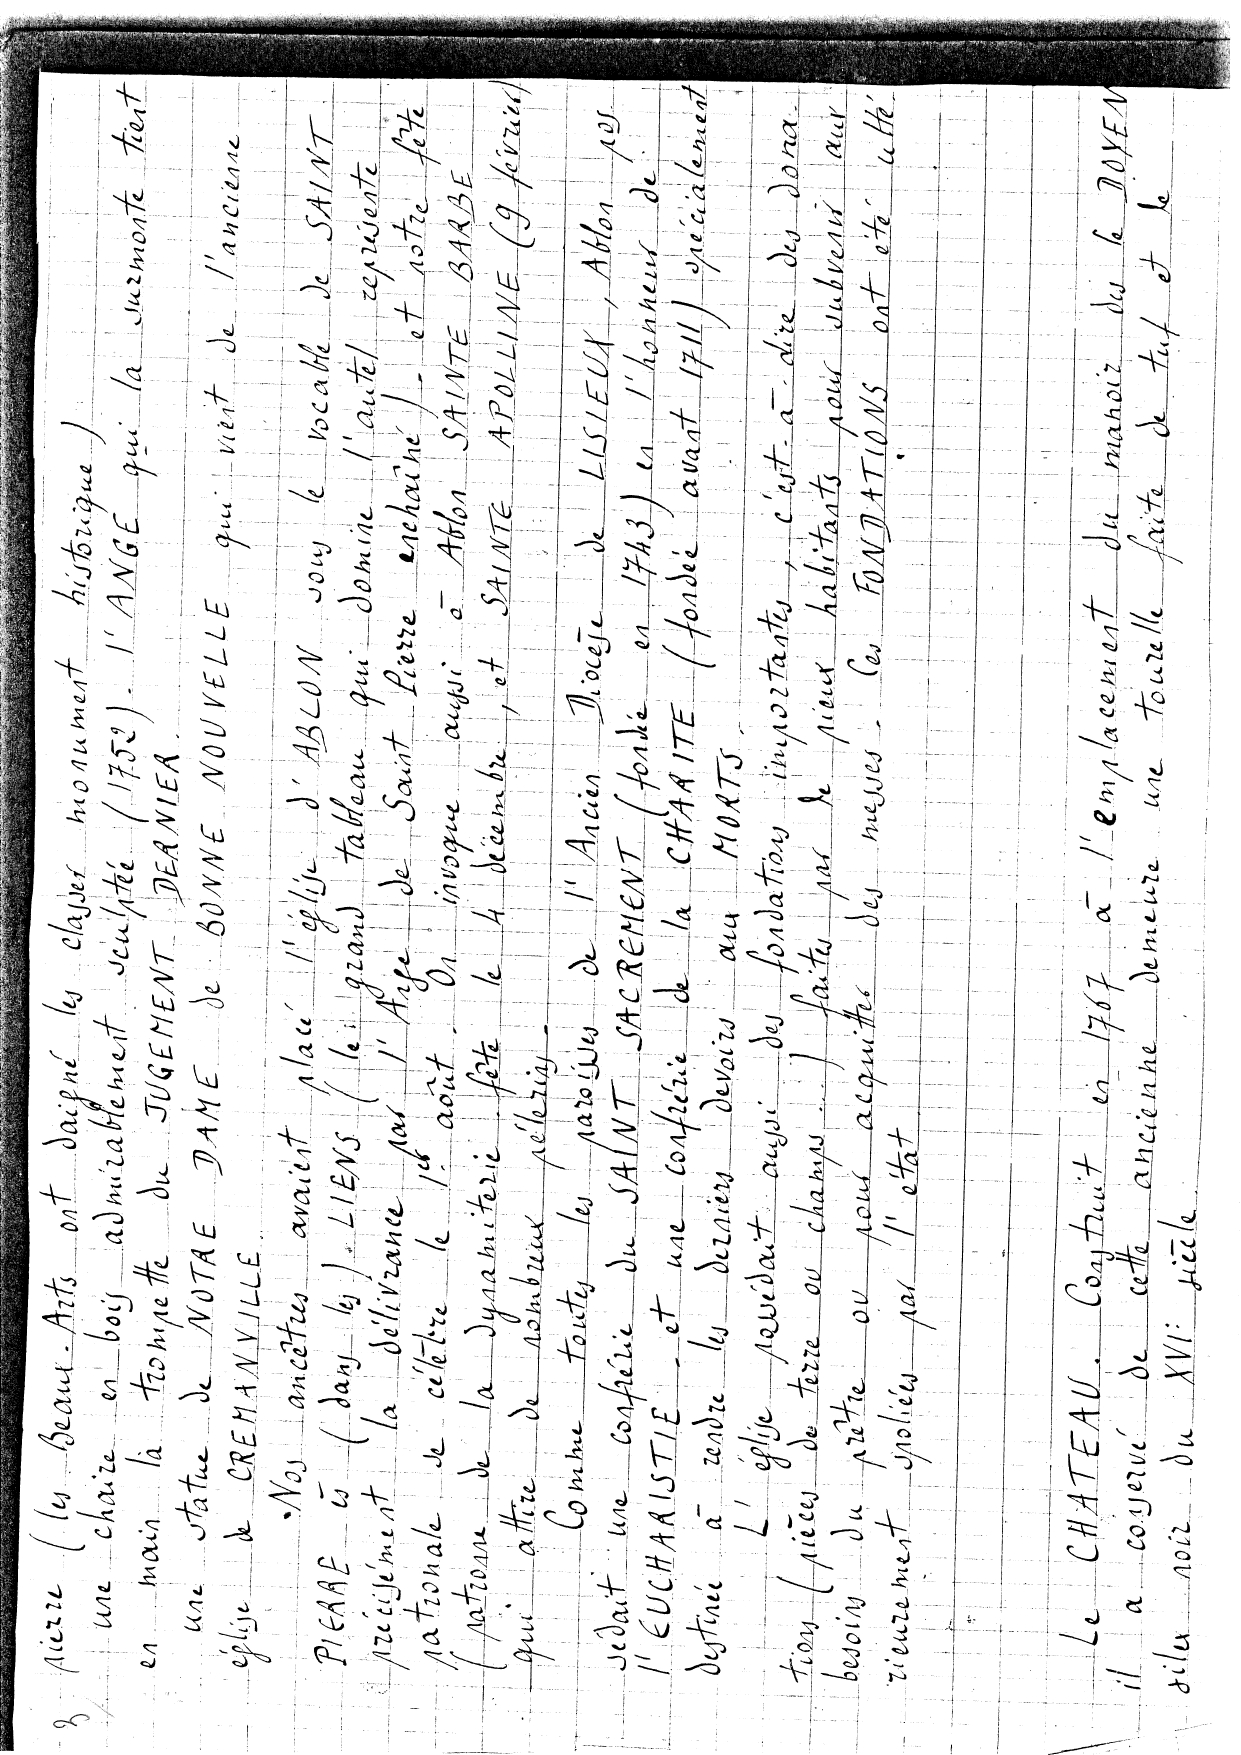 3
pierre (les Beaux-Arts ont daigné les classer monument historique)
une chaire en bois admirablement sculptée (1752). l'ANGE qui la surmonte tient
en main la trompette du JUGEMENT DERNIER.
une statue de NOTRE DAME de BONNE NOUVELLE qui vient de l'ancienne
église de CREMANVILLE
.Nos ancêtres avaient placé l'église d'ABLON sous le vocable de SAINT
PIERRE ès (dans les) LIENS (le grand tableau qui domine l'autel représente
précisément la délivrance par l'Ange de Saint Pierre enchaîné) - et notre fête
patronale se célèbre le 1er août. On invoque aussi à Ablon SAINTE BARBE
(patronne de la dynamiterie fête le 4 décembre, et SAINTE APOLLINE (9 février)
qui attire de nombreux pélerins -
Comme toutes les paroisses de l'Ancien Diocèse de LISIEUX, Ablon pos
sédait une confrérie du SAINT SACREMENT (fondée en 1743) en l'honneur de
l'EUCHARISTIE - et une confrérie de la CHARITE (fondée avant 1711) spécialement
destinée à rendre les derniers devoirs aux MORTS.
L'église possédait aussi des fondations importantes, c'est-à-dire des dona-
tions (pièces de terre ou champs...) faites par de pieux habitants pour subvenir aux
besoins du prêtre ou pour acquitter des messes - Ces FONDATIONS ont été ulté
rieurement spoliées par l'état
Le CHATEAU. Construit en 1767 à l'emplacement du manoir dis le DOYEN
il a conservé de cette ancienne demeure une tourelle faite de tuf et de
silex noir du XVI: siècle